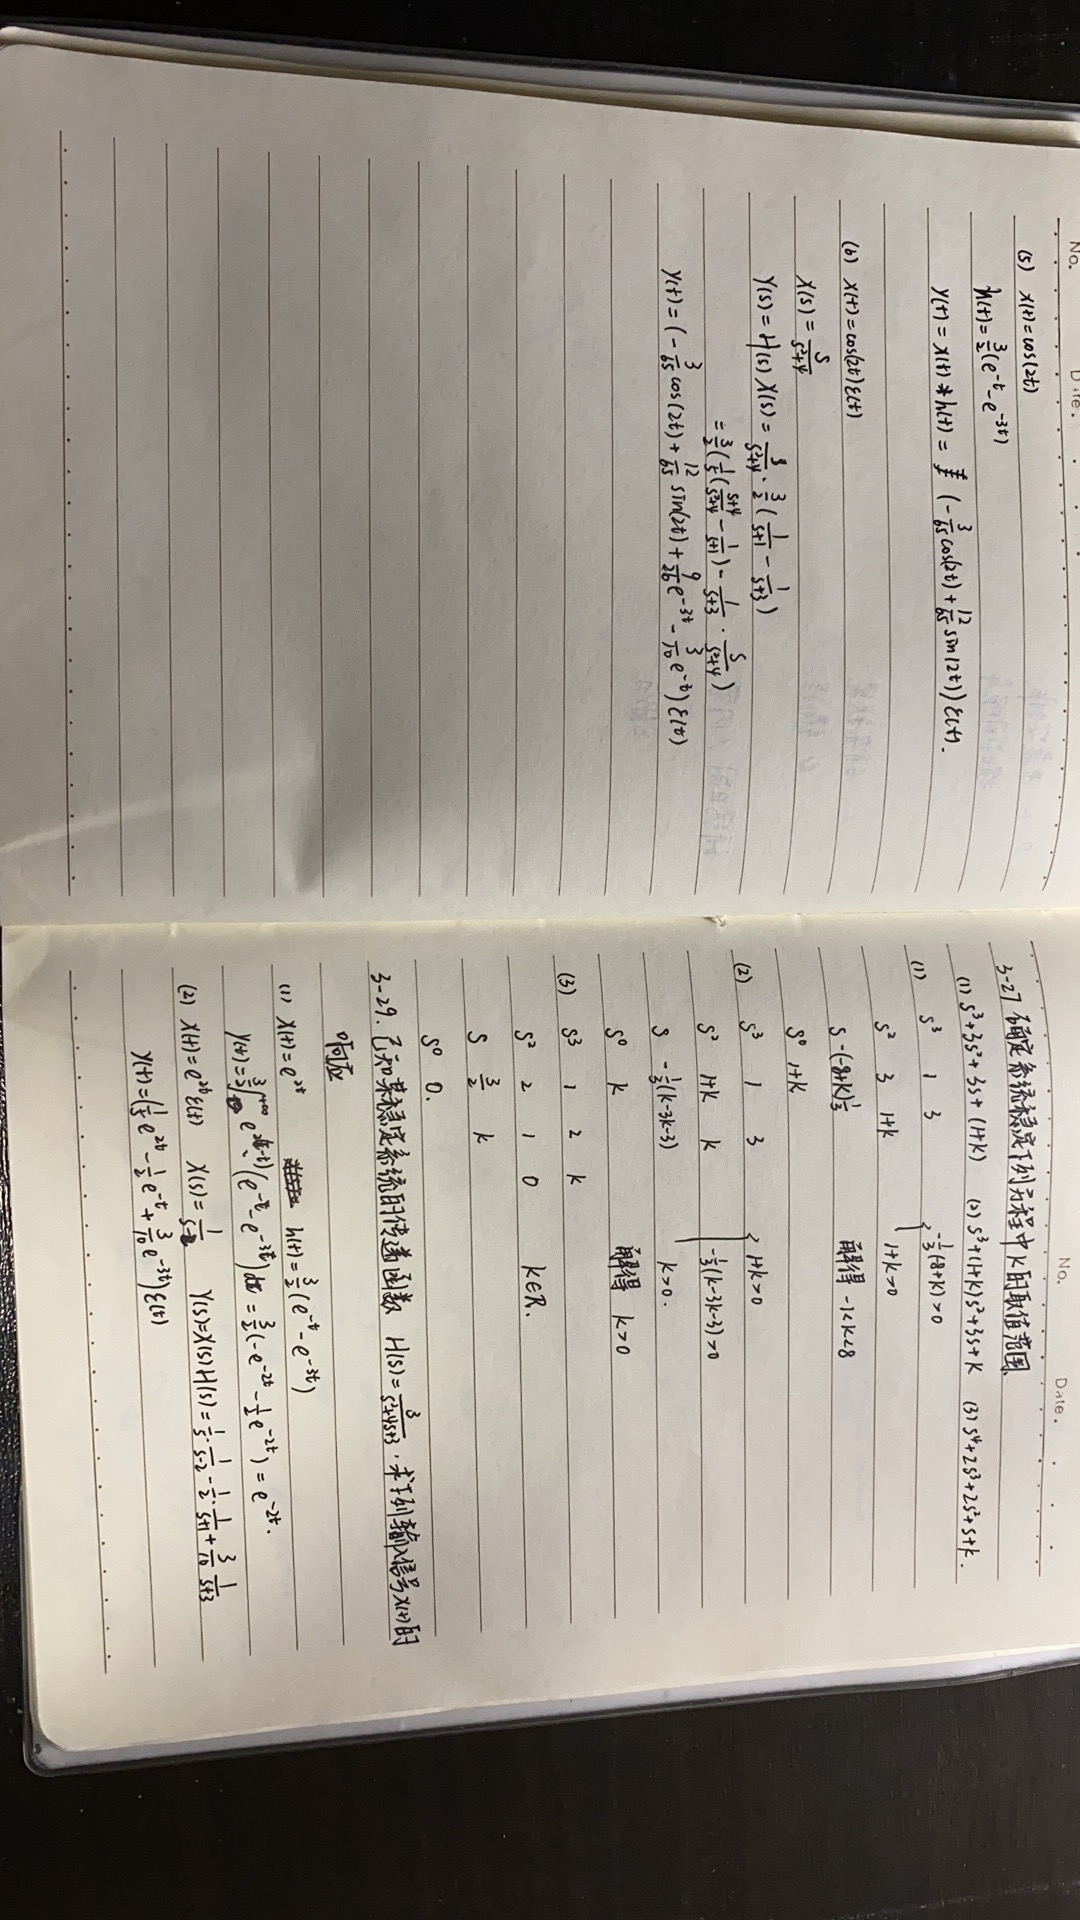 No.
Date.
(5) x(t)=cos(2t)
h(t)=3/2(e^-t-e^-3t)
y(t)=x(t)*h(t)= (-3/65cos(2t)+12/65sin(2t))ε(t).
(6) x(t)=cos(2t)ε(t)
X(s)=s/(s²+4)
Y(s)=H(s)X(s)=s/(s²+4)·3/2(1/(s+1)-1/(s+3))
=3/2(1/5((s+4)/(s²+4)-1/(s+1))-1/(s+3)·s/(s²+4))
y(t)=(-3/65cos(2t)+12/65sin(2t)+9/26e^-3t-3/10e^-t)ε(t)
No.
Date.
3-27 确定系统稳定下列方程中K的取值范围
(1) s³+3s²+3s+(1+k) (2) s³+(1+k)s²+3s+k (3) s⁴+2s³+2s²+s+k.
(1) s³ 1 3 { -1/3(8+k)>0
s² 3 1+k 1+k>0
s -(-8+k)1/3 解得 -1<k<8
s⁰ 1+k
(2) s³ 1 3 { 1+k>0
s² 1+k k -1/3(k-3k-3)>0
s -1/3(k-3k-3) k>0.
s⁰ k 解得 k>0
(3) s³ 1 2 k
s² 2 1 0 k∈R.
s 3/2 k
s⁰ 0.
3-29. 已知某稳定系统的传递函数 H(s)=3/(s²+4s+3). 求下列输入信号x(t)的
响应
(1) x(t)=e^2t h(t)=3/2(e^-t-e^-3t)
=3/2(-e^-2t-1/2e^-2t)=e^-2t.
(2) x(t)=e^2tε(t) X(s)=1/(s-2) Y(s)=X(s)H(s)=1/5·1/(s-2)-1/2·1/(s+1)+3/10 1/(s+3)
y(t)=(1/5e^2t-1/2e^-t+3/10e^-3t)ε(t)